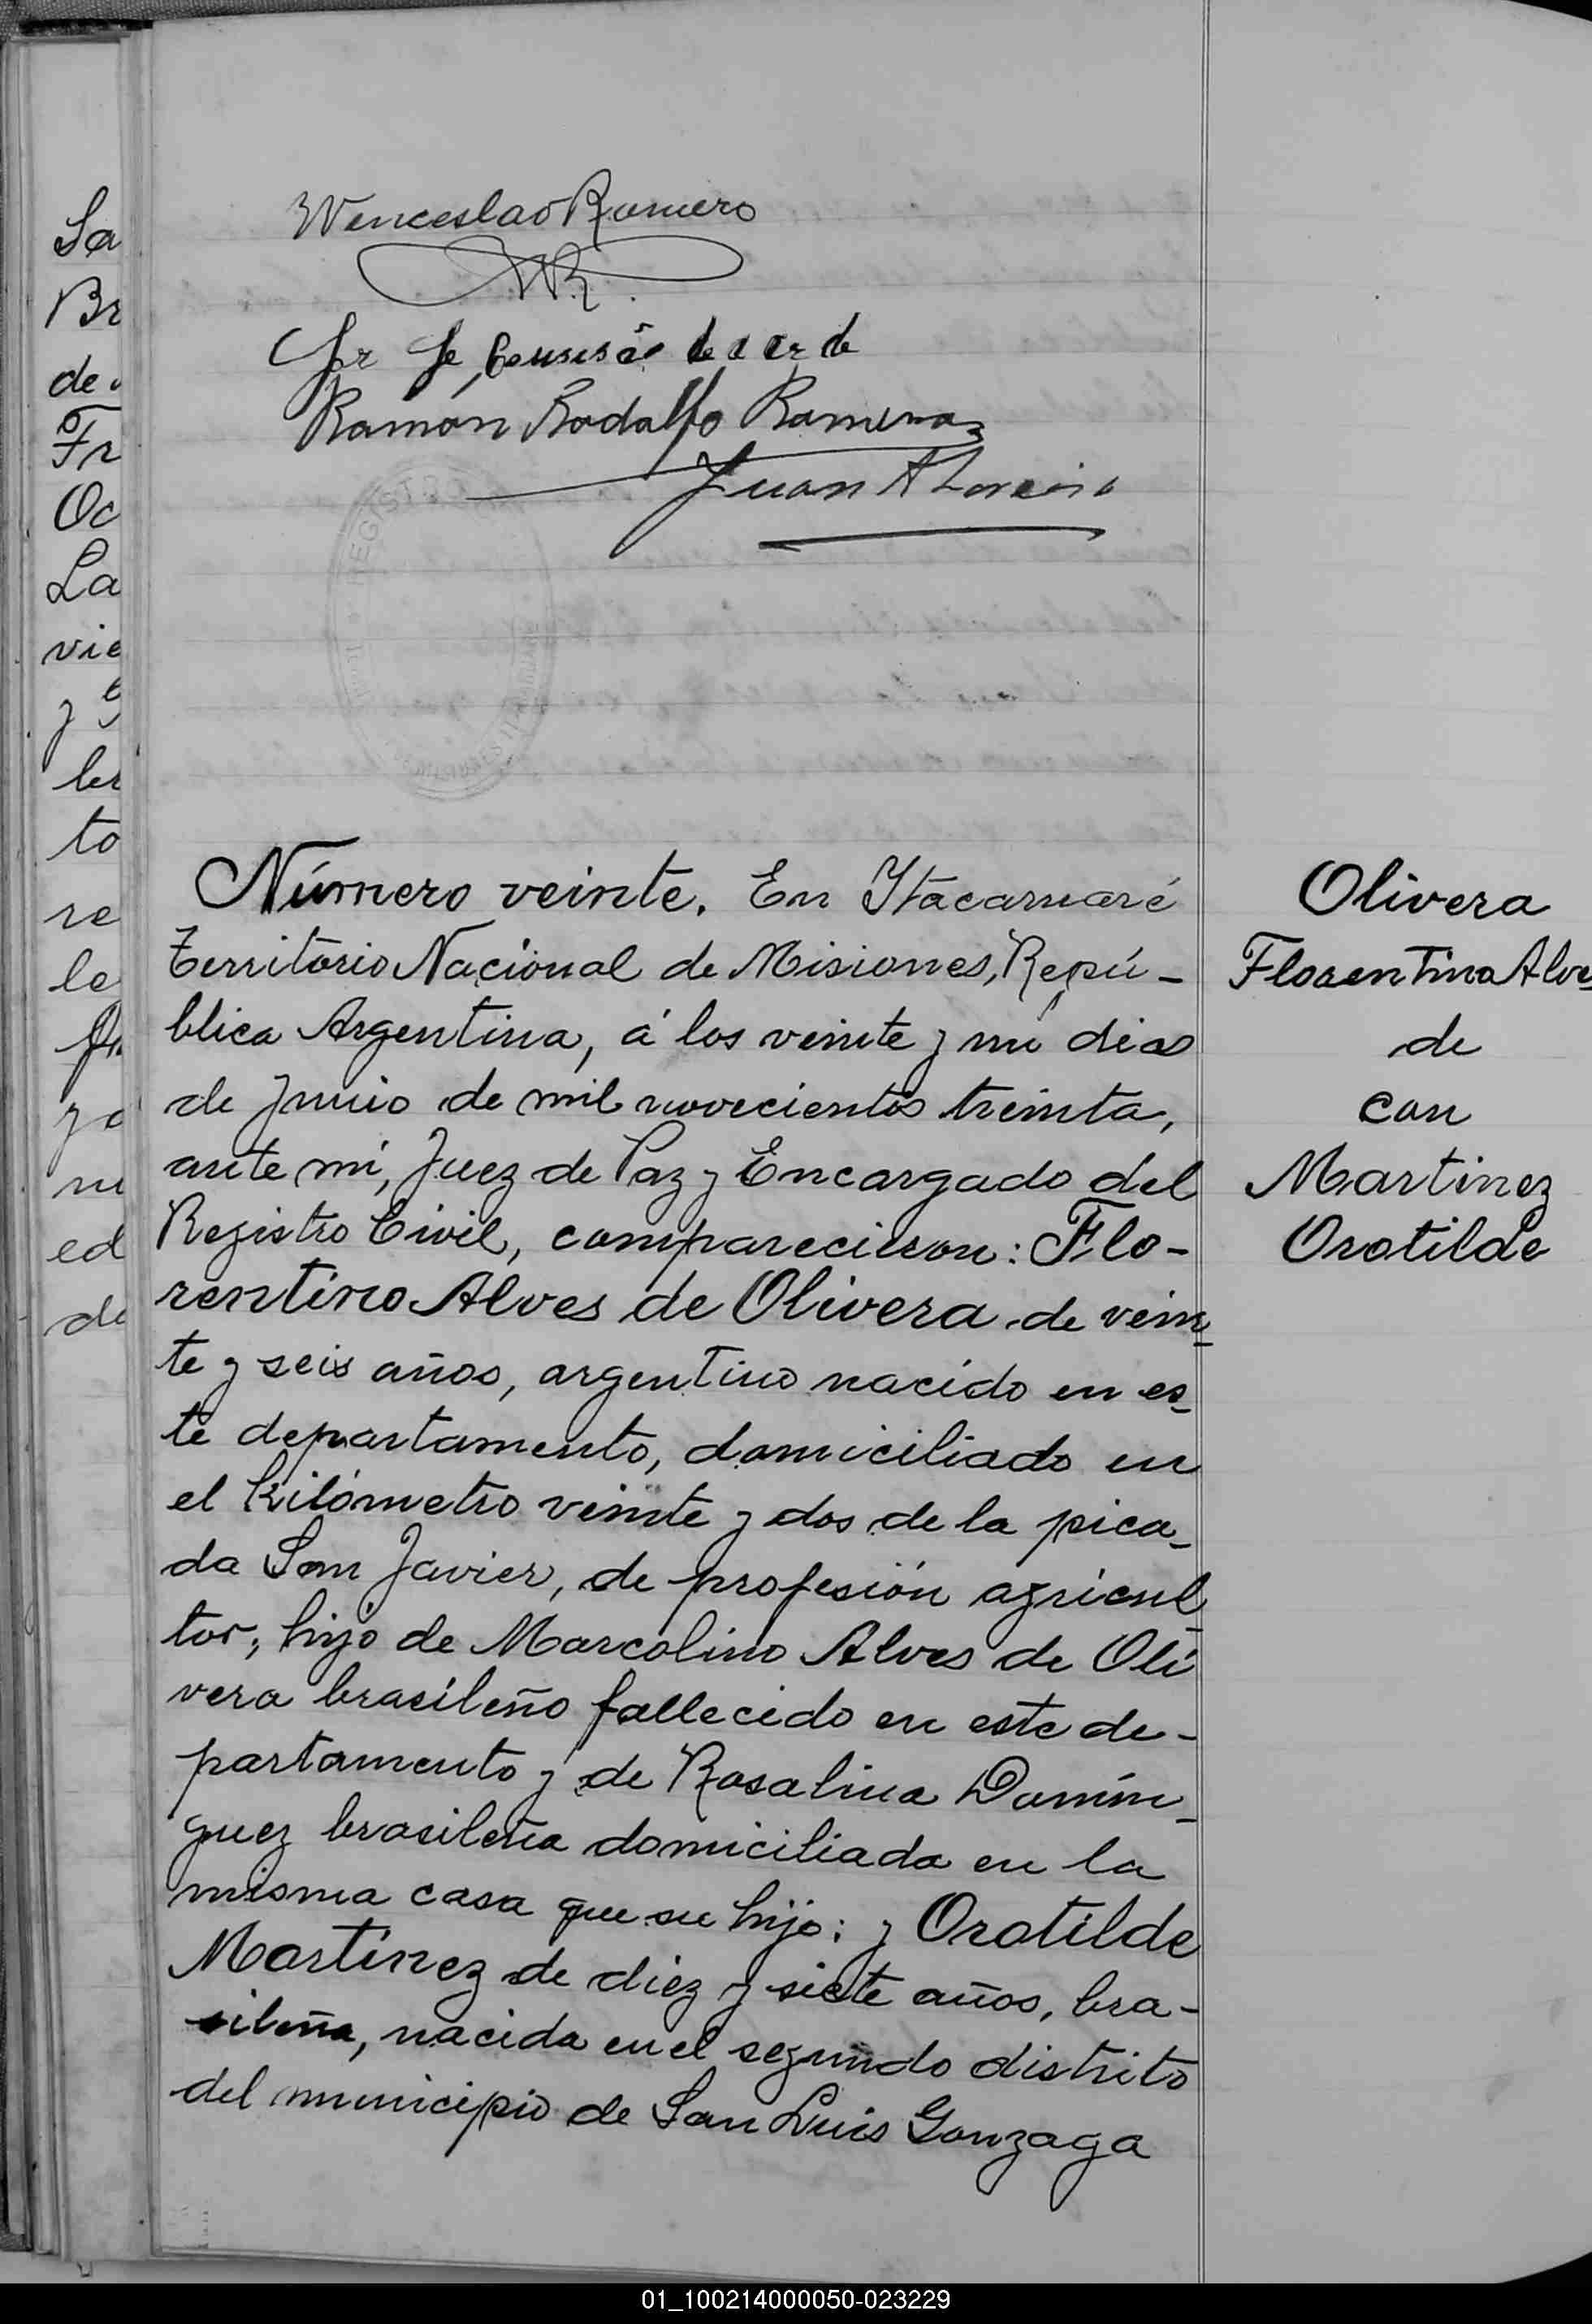 Wenceslao Romero
WR.
Ramon Rodolfo
Juan A
REGISTRO
Número veinte. En Itacaruaré
Territorio Nacional de Misiones, Repú-
blica Argentina, á los veinte y un dias
de Junio de mil novecientos treinta,
ante mi, Juez de Paz y Encargado del
Registro Civil, comparecieron: Flo-
rentino Alves de Olivera de vein-
te y seis años, argentino nacido en es-
te departamento, domiciliado en
el kilómetro veinte y dos de la pica-
da San Javier, de profesión agricul-
tor, hijo de Marcolino Alves de Oli
vera brasileño fallecido en este de-
partamento y de Rosalina Domín-
guez brasileña domiciliada en la
misma casa que su hijo; y Orotilde
Martínez de diez y siete años, bra-
sileña, nacida en el segundo distrito
del municipio de San Luis Gonzaga
Olivera
Florentino Alves
de
con
Martinez
Orotilde
Sa
Br
de
Fr
Oc
La
vie
y
ber
to
re
le
ed
de
01_100214000050-023229